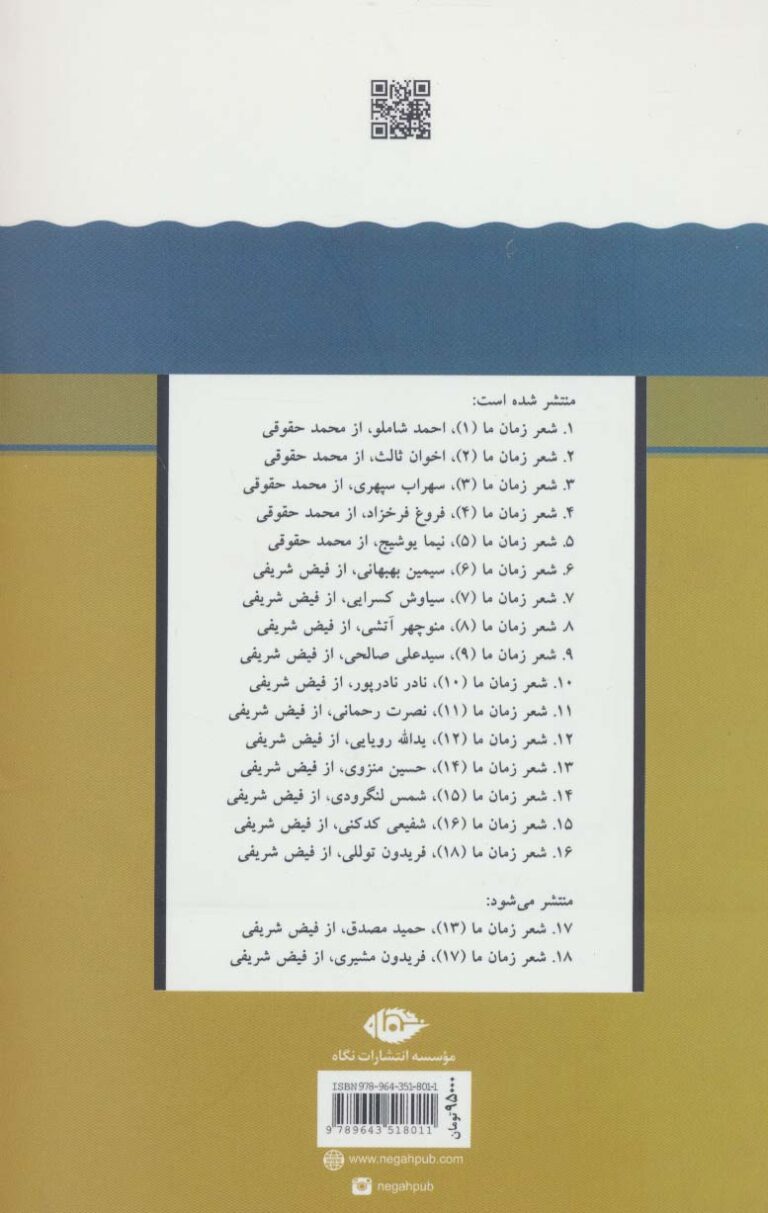 منتشر شده است:
۱. شعر زمان ما (۱)، احمد شاملو، از محمد حقوقی
۲. شعر زمان ما (۲)، اخوان ثالث، از محمد حقوقی
۳. شعر زمان ما (۳)، سهراب سپهری، از محمد حقوقی
۴. شعر زمان ما (۴)، فروغ فرخزاد، از محمد حقوقی
۵. شعر زمان ما (۵)، نیما یوشیج، از محمد حقوقی
۶. شعر زمان ما (۶)، سیمین بهبهانی، از فیض شریفی
۷. شعر زمان ما (۷)، سیاوش کسرایی، از فیض شریفی
۸. شعر زمان ما (۸)، منوچهر آتشی، از فیض شریفی
۹. شعر زمان ما (۹)، سیدعلی صالحی، از فیض شریفی
۱۰. شعر زمان ما (۱۰)، نادر نادرپور، از فیض شریفی
۱۱. شعر زمان ما (۱۱)، نصرت رحمانی، از فیض شریفی
۱۲. شعر زمان ما (۱۲)، یدالله رویایی، از فیض شریفی
۱۳. شعر زمان ما (۱۴)، حسین منزوی، از فیض شریفی
۱۴. شعر زمان ما (۱۵)، شمس لنگرودی، از فیض شریفی
۱۵. شعر زمان ما (۱۶)، شفیعی کدکنی، از فیض شریفی
۱۶. شعر زمان ما (۱۸)، فریدون توللی، از فیض شریفی
منتشر می‌شود:
۱۷. شعر زمان ما (۱۳)، حمید مصدق، از فیض شریفی
۱۸. شعر زمان ما (۱۷)، فریدون مشیری، از فیض شریفی
مؤسسه انتشارات نگاه
ISBN 978-964-351-801-1
9 789643 518011
۹۵۰۰۰ تومان
www.negahpub.com
negahpub